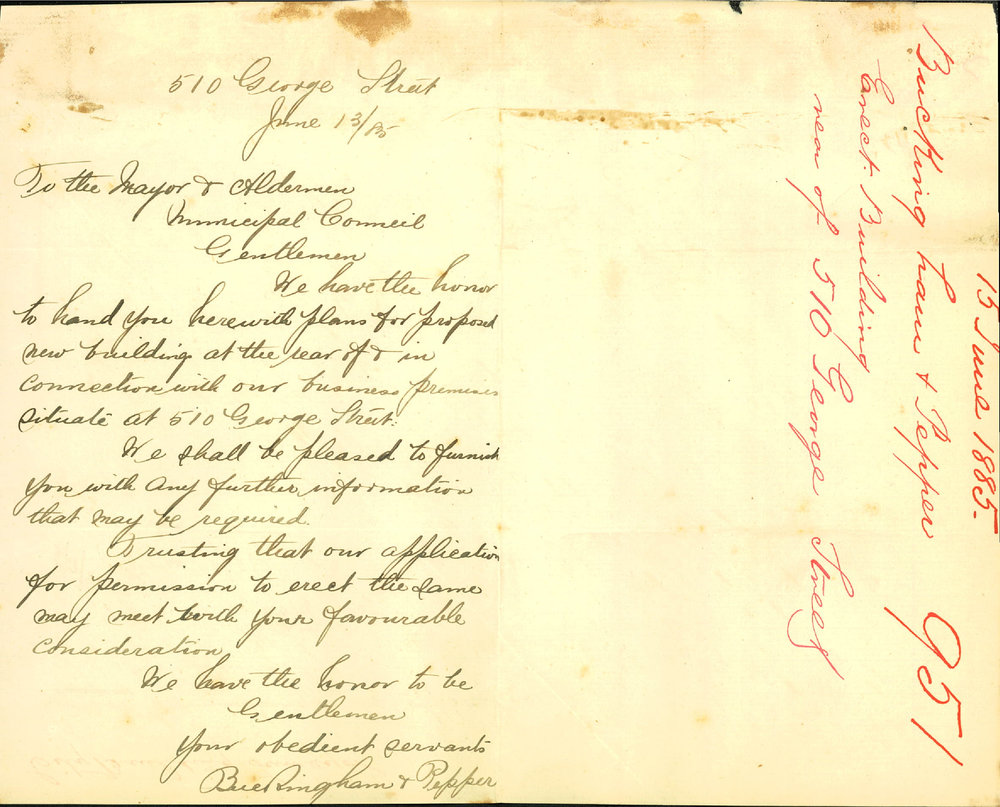 510 George Street
June 13/85
To the Mayor & Aldermen
Municipal Council
Gentlemen
We have the honor
to hand you herewith plans for proposed
new building at the rear of & in
connection with our business premises
situate at 510 George Street.
We shall be pleased to furnish
you with any further information
that may be required.
Trusting that our application
for permission to erect the same
may meet with your favourable
consideration
We have the honor to be
Gentlemen
Your obedient servants
Buckingham & Pepper
15 June 1885.
Buckingham & Pepper 951
Erect: Building
rear of 510 George Street